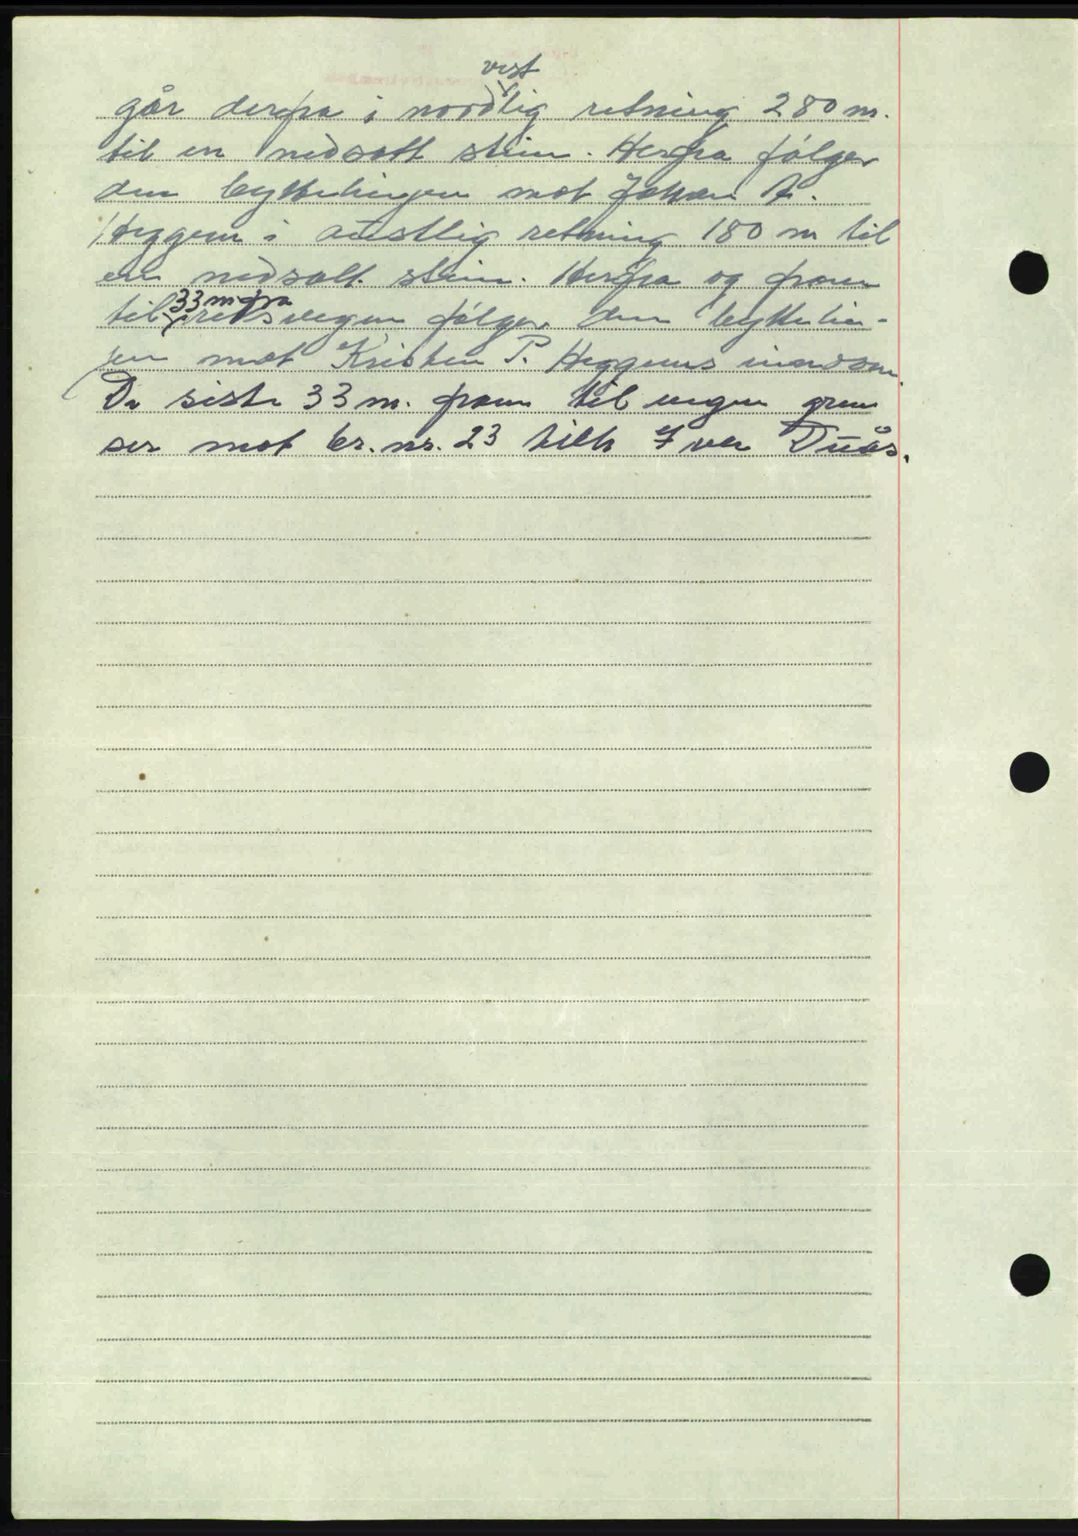 vest
går derfra i nordlig retning 280 m.
til en nedsatt stein. Herfra følger
den byttelinjen mot Johan A.
Heggem i austlig retning 180 m til
en nedsatt stein. Herfra og fram
33 m fra
til riksvegen følger den byttelin-
jen mot Kristen P. Heggems eiendom.
De siste 33 m. fram til vegen gren
ser mot br. nr. 23 tilh. Iver Duås.